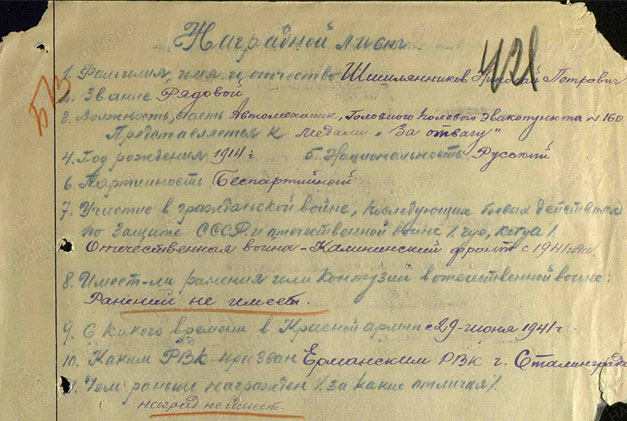 Наградной лист
421
573
1. Фамилия, имя и отчество Шишлянников Николай Петрович
2. Звание Рядовой
3. Должность, часть Автомеханик, Головного Полевого Эвакопункта №160
Представляется к медали "За отвагу"
4. Год рождения 1914 г. 5. Национальность Русский
6. Партийность Беспартийный
7. Участие в гражданской войне, последующих боевых действиях
по защите СССР и отечественной войне /где, когда/
Отечественная война - Калининский фронт с 1941 года
8. Имеет-ли ранения или контузии в отечественной войне:
Ранений не имеет.
9. С какого времени в Красной армии с 29-июня 1941 г
10. Каким РВК призван Ерманским РВК г. Сталинграда
11. Чем раньше награжден /за какие отличия/
наград не имеет.